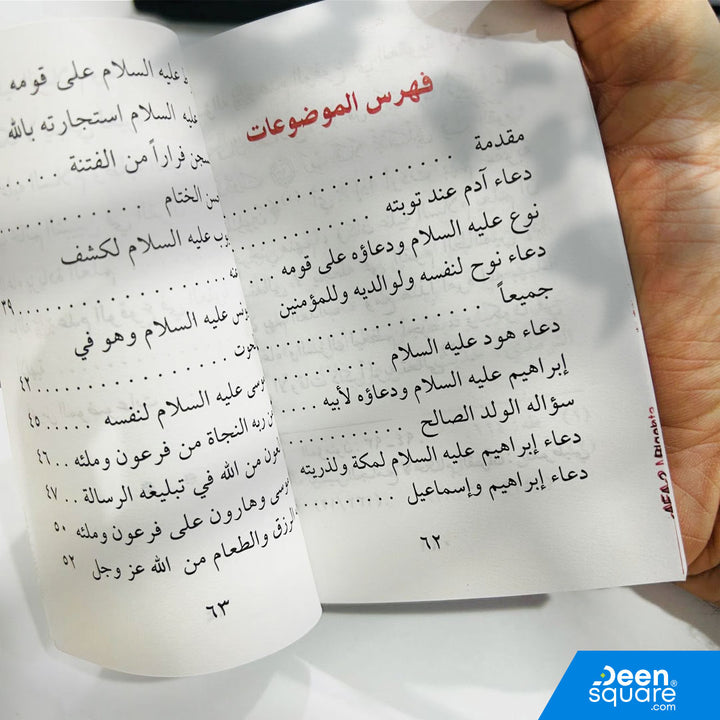 فهرس الموضوعات
مقدمة ......................
دعاء آدم عند توبته ............
نوع عليه السلام ودعاؤه على قومه ....
دعاء نوح لنفسه ولوالديه وللمؤمنين
جميعاً ....................
دعاء هود عليه السلام ............
إبراهيم عليه السلام ودعاؤه لأبيه ....
سؤاله الولد الصالح ............
دعاء إبراهيم عليه السلام لمكة ولذريته
دعاء إبراهيم وإسماعيل ..........
٦٢
عليه السلام على قومه
عليه السلام استجارته بالله
فراراً من الفتنة ......
الختام ............
عليه السلام لكشف
.................. ٣٩
عليه السلام وهو في
.................. ٤٢
عليه السلام لنفسه ...... ٤٥
ربه النجاة من فرعون وملئه .. ٤٦
من الله في تبليغه الرسالة .. ٤٧
وهارون على فرعون وملئه ٥٠
الرزق والطعام من الله عز وجل ٥٢
٦٣
Deen
square®
.com